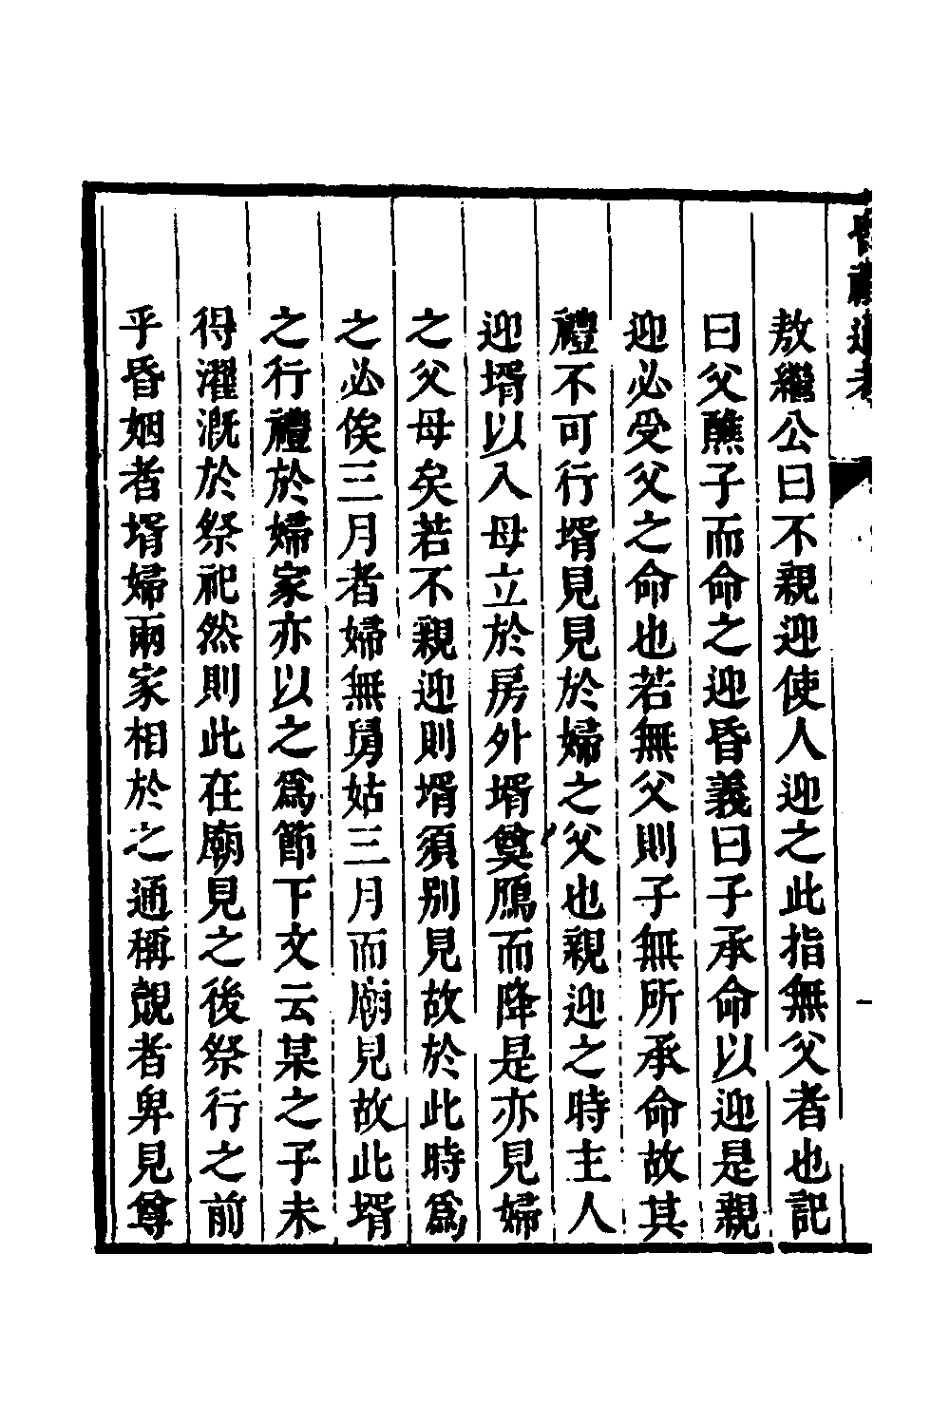 敖繼公曰不親迎使人迎之此指無父者也記
曰父醮子而命之迎昏義曰子承命以迎是親
迎必受父之命也若無父則子無所承命故其
禮不可行壻見見於婦之父也親迎之時主人
迎壻以入母立於房外壻奠鴈而降是亦見婦
之父母矣若不親迎則壻須别見故於此時爲
之必俟三月者婦無舅姑三月而廟見故此壻
之行禮於婦家亦以之爲節下文云某之子未
得濯漑於祭祀然則此在廟見之後祭行之前
乎昏姻者壻婦兩家相於之通稱覿者卑見尊